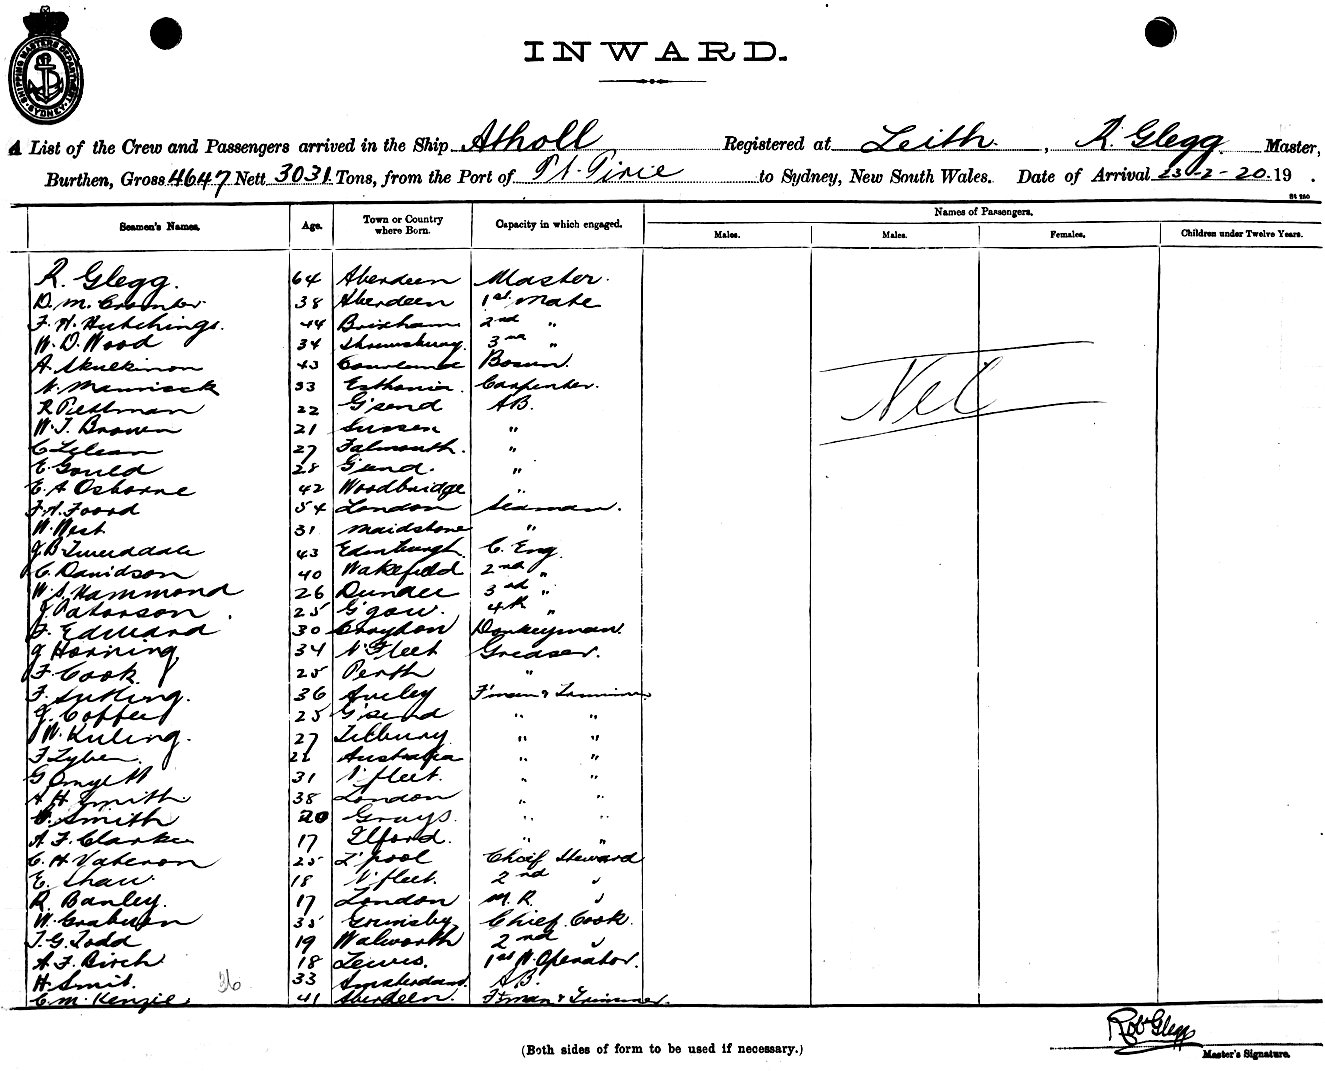 SHIPPING MASTERS DEPARTMENT SYDNEY
INWARD.
A List of the Crew and Passengers arrived in the Ship Atholl Registered at Leith, R. Glegg Master,
Burthen, Gross 4647 Nett 3031 Tons, from the Port of Pt. Pirie to Sydney, New South Wales. Date of Arrival 23-2-20.19 .
St 230
Seamen's Names. Age. Town or Country where Born. Capacity in which engaged. Names of Passengers.
Males. Males. Females. Children under Twelve Years.
R. Glegg. 64 Aberdeen Master.
D. M. 38 Aberdeen 1st Mate
F. H. Hutchings. 44 Brixham 2nd "
W. D. Wood 34 Shrewsbury. 3rd "
A. 43 Bosun.
N. 33 Esthonia. Carpenter.
R 22 G'send AB.
W. J. Brown 21 Sussex "
C 27 Falmouth. "
E. Gould 28 G'send. "
E. A Osborne 42 Woodbridge "
F. A. Foord 54 London Seaman.
W. West 31 Maidstone "
J B Tweeddale 43 Edinburgh. C. Eng.
C. Davidson 40 Wakefield 2nd "
W. S. Hammond 26 Dundee 3rd "
J Paterson 25 G'gow. 4th "
F. Edward 30 Croydon Donkeyman.
J Horning 34 N'Fleet Greaser.
F. Cook 25 Perth "
F. 36 Aveley F'man & Trimmer
J. 25 G'send " "
W. 27 Tilbury " "
F 22 Australia " "
G 31 N'fleet. " "
A H. Smith 38 London " "
Smith 20 Grays. " "
A F. Clarke 17 Ilford. " "
C. H. 25 L'pool Chief Steward
E. Shaw 18 N'fleet. 2nd "
R. Banley. 17 London M. R. "
W. 35 Grimsby Chief Cook.
T. G. Todd 19 Walworth 2nd "
A. F. Birch 18 Lewis. 1st W. Operator.
H. Smit. 36 33 Amsterdam. AB.
C. M. Kenzie 41 Aberdeen. F'man & Trimmer.
Nil
Robt Glegg
(Both sides of form to be used if necessary.)
Master's Signature.